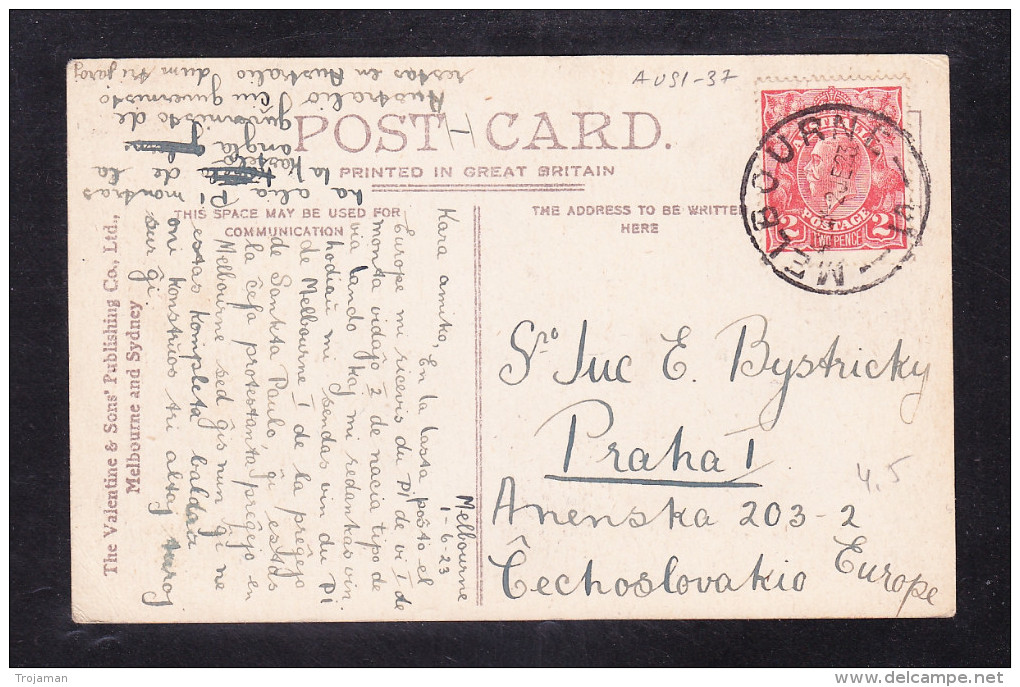 AUS1-37
POST CARD.
PRINTED IN GREAT BRITAIN
THIS SPACE MAY BE USED FOR
COMMUNICATION
THE ADDRESS TO BE WRITTEN
HERE
The Valentine & Sons' Publishing Co., Ltd.,
Melbourne and Sydney
MELBOURNE
POSTAGE
2 TWO PENCE 2
Melbourne
1-6-23
Kara amiko, En la lasta poŝto el
Europe mi ricevis du PI de vi I de
monta vidaĵo 2 de nacia tipo de
via lando kaj mi redankas vin.
hodiaŭ mi sendas vin du PI
de Melbourne I de la preĝejo
de Sankta Paulo, ĝi estas
la ĉefa protestanta preĝejo en
Melbourne sed ĝis nun ĝi ne
estas kompleta baldaŭ
oni konstruos tri altaj turoj
sur ĝi.
La alia PI montras
la kastelo de la
angla
guvernisto de
Australio ĉiu guvernisto
restas en Australio dum tri jaroj
Sro Juc E. Bystricky
Praha I
Anenska 203-2
Ĉechoslovakio
Europe
4,5
Trojaman
www.delcampe.net